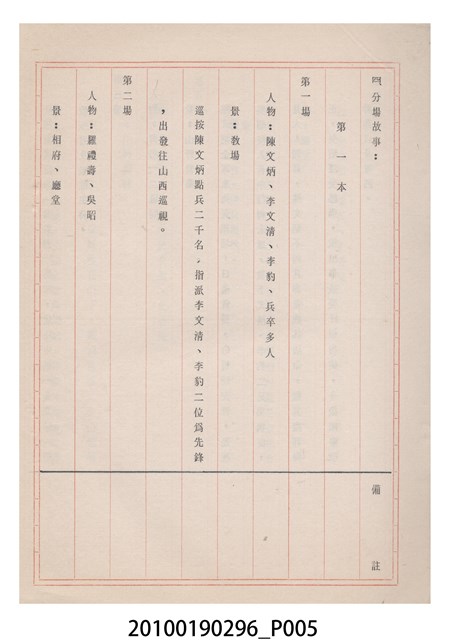 四分場故事：
第一本
第一場
人物：陳文炳、李文清、李豹、兵卒多人
景：教場
巡按陳文炳點兵二千名，指派李文清、李豹二位爲先鋒
，出發往山西巡視。
第二場
人物：羅禮壽、吳昭
景：相府、廳堂
備註
20100190296_P005